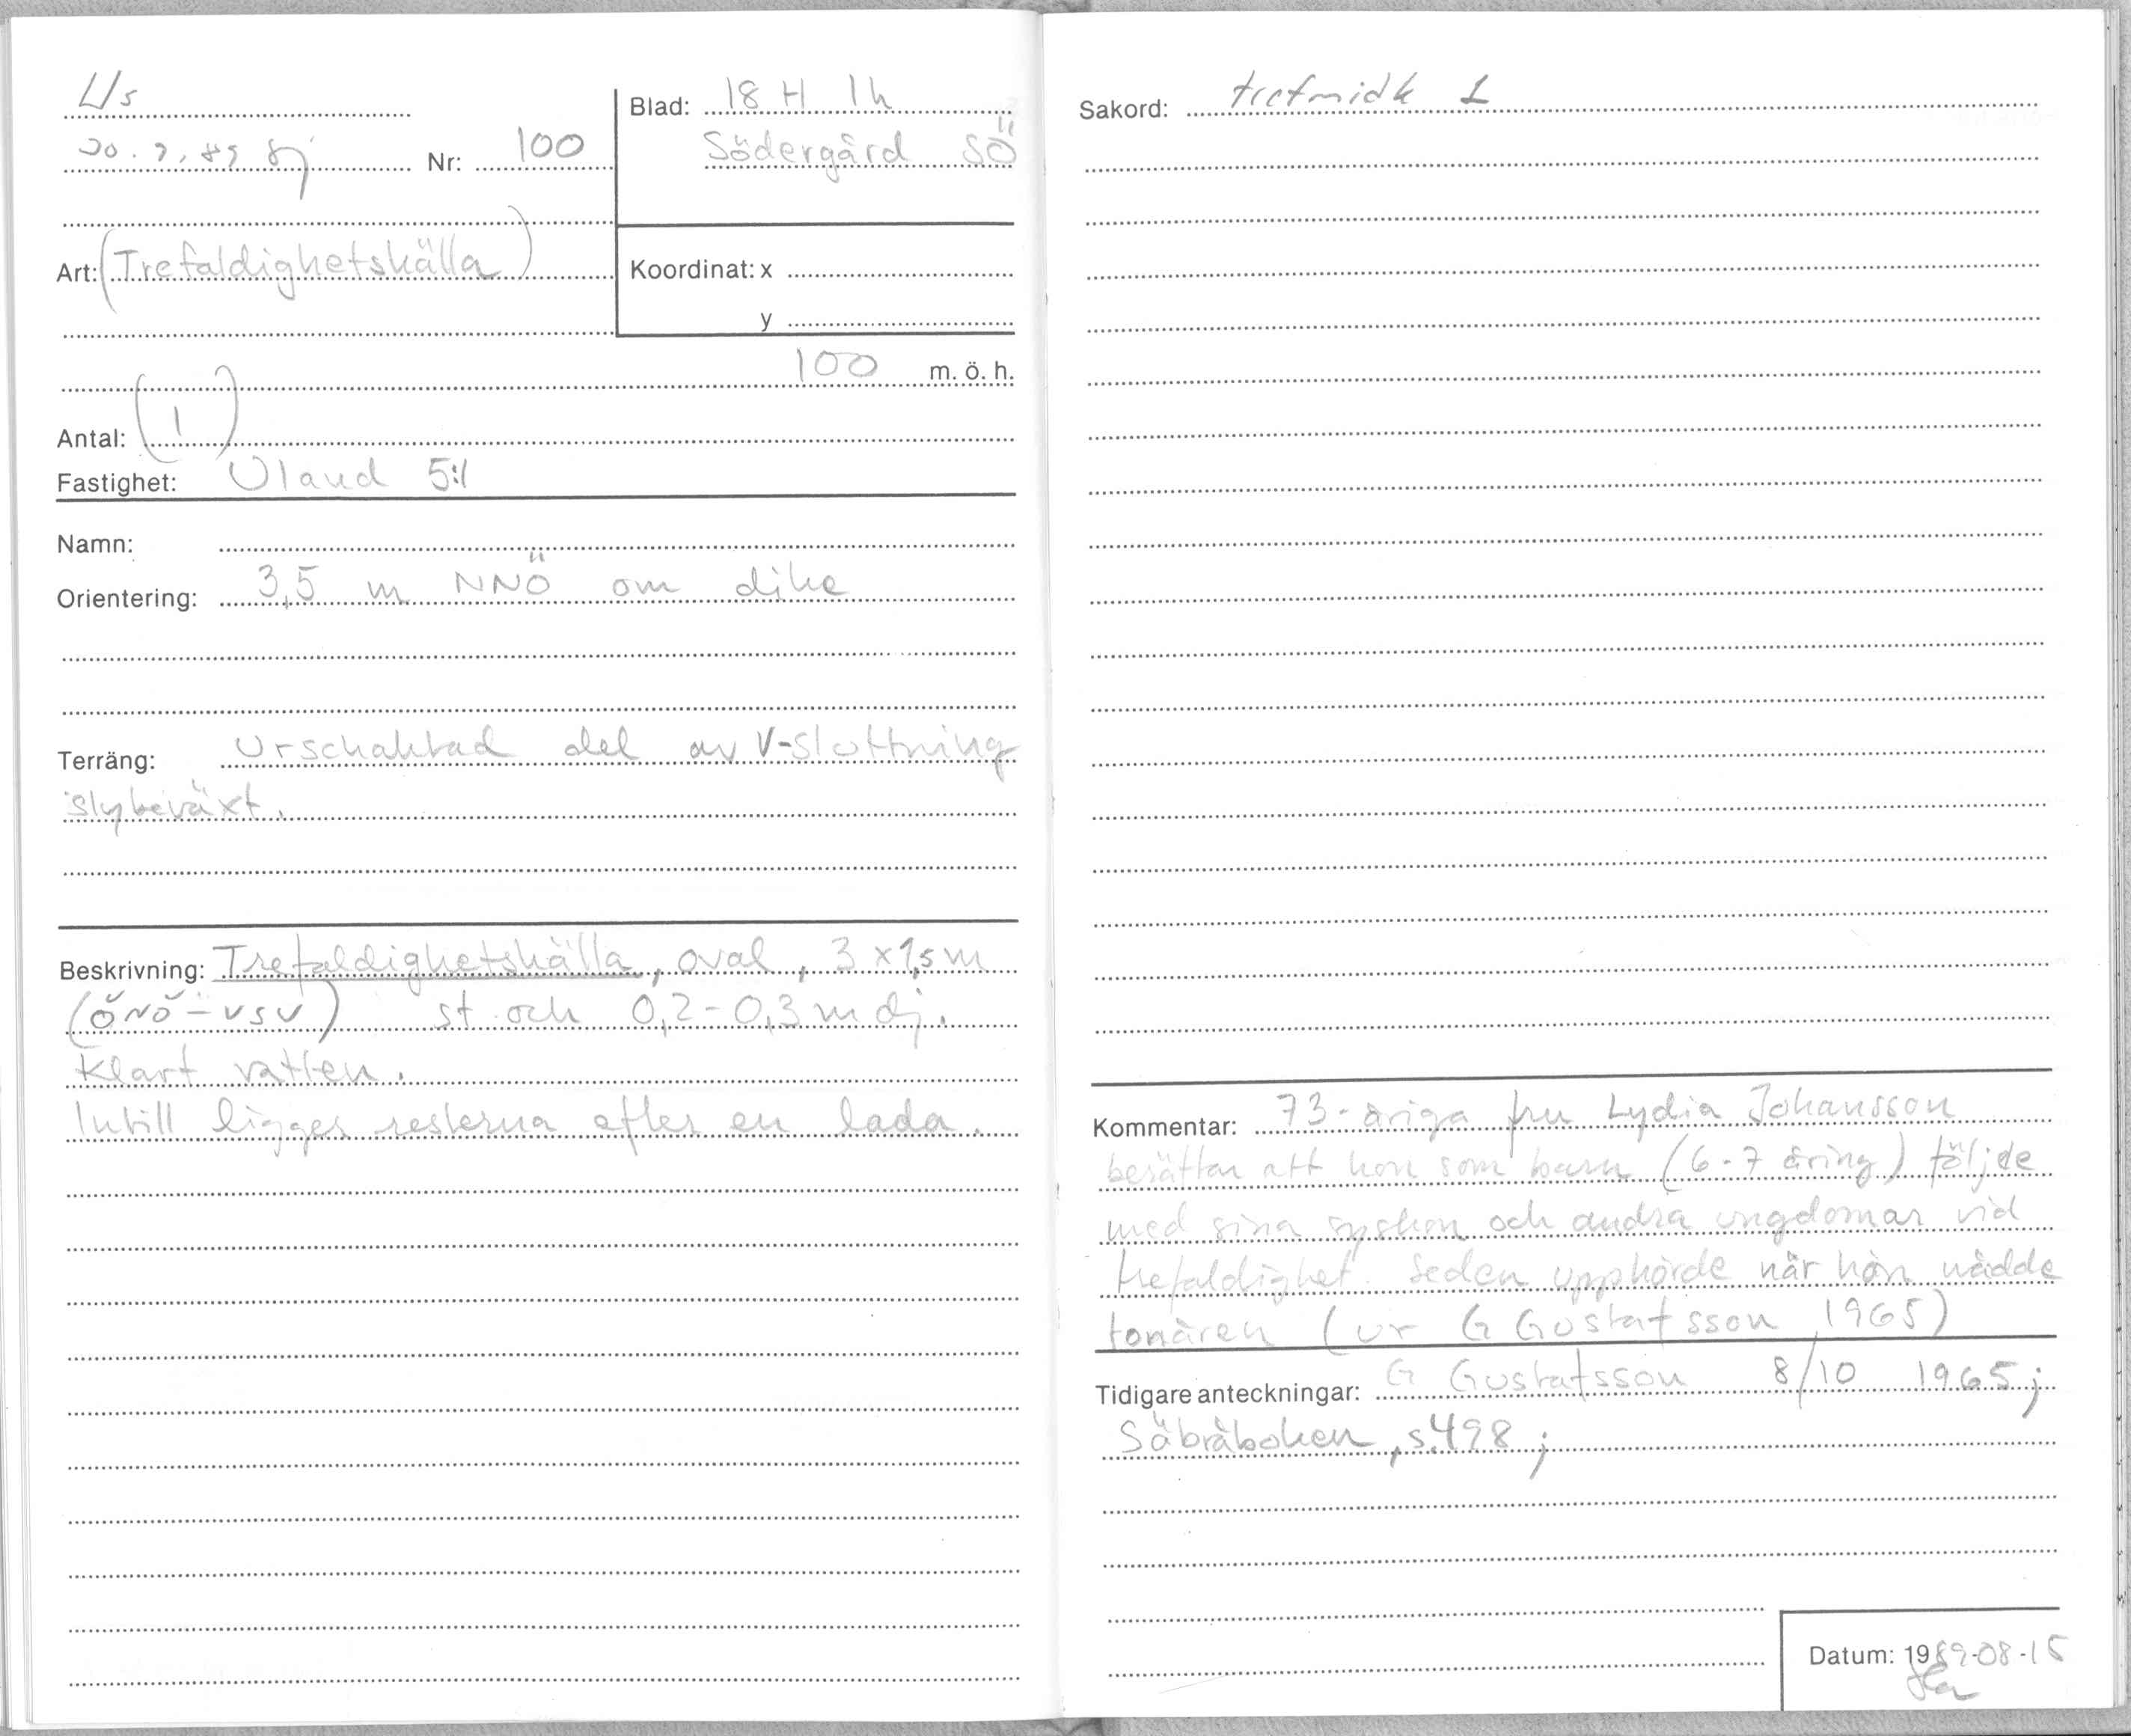 Blad: 18 H 1h
Nr: 100
Södergård SÖ
Art: (Trefaldighetskälla)
Koordinat: x
y
100 m. ö. h.
Antal: (1)
Fastighet: Uland 5:1
Namn:
Orientering: 3,5 m NNÖ om dike
Terräng: Urschaktad del av V-sluttning
slybeväxt.
Beskrivning: Trefaldighetskälla, oval, 3 x 1,5 m
(ÖNÖ - VSV) st och 0,2-0,3 m dj.
Klart vatten.
Intill ligger resterna efter en lada.
Sakord:
Kommentar: 73-åriga fru Lydia Johansson
berättar att hon som barn (6-7 åring) följde
med sina syskon och andra ungdomar vid
trefaldighet. Seden upphörde när hon nådde
tonåren (ur G Gustafsson 1965)
Tidigare anteckningar: G Gustafsson 8/10 1965;
Säbråboken, s.498;
Datum: 1989-08-15